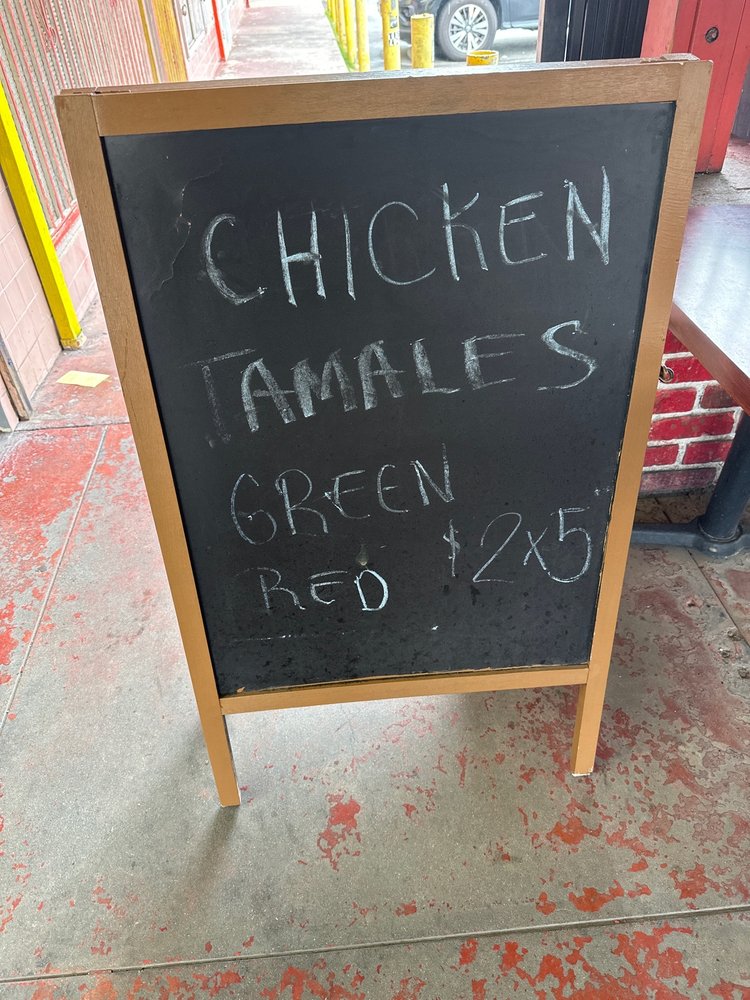 CHICKEN
TAMALES
GREEN
RED $2x5